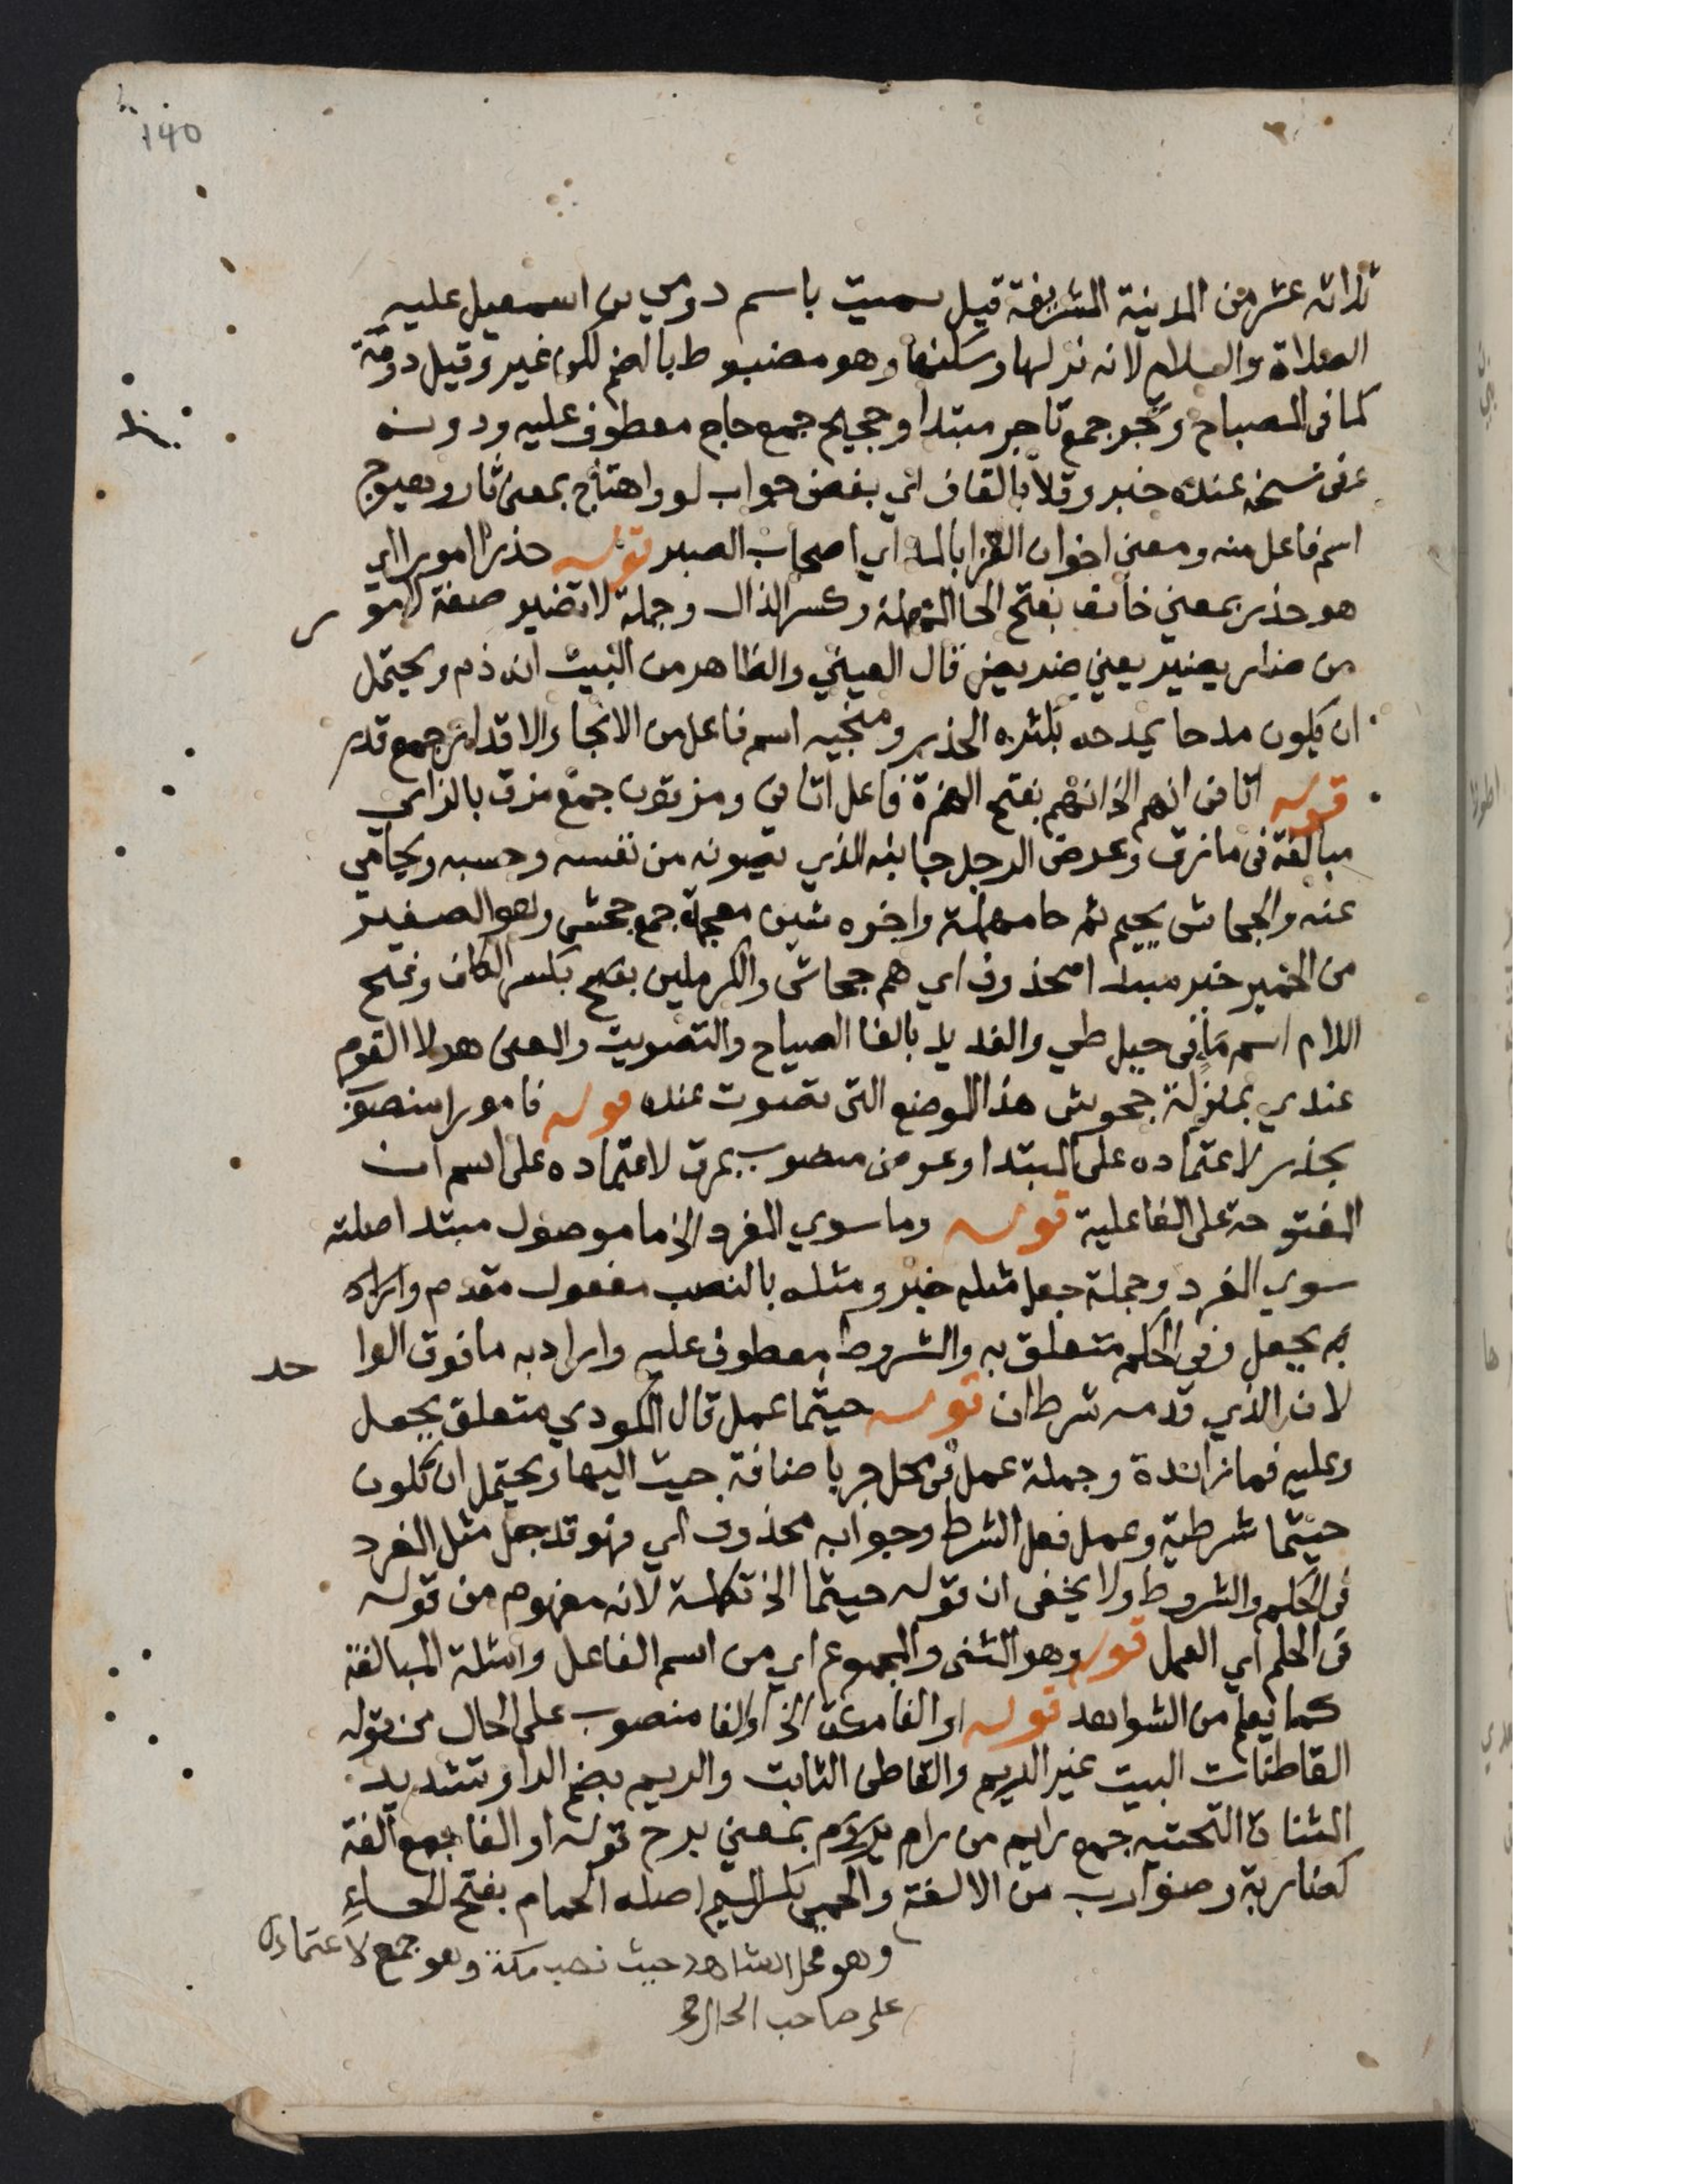 140
ثلاثه عشر من المدينة الشريفة قيل سميت باسم دومي بن اسمعيل عليه
الصلاة والسلام لانه نزلها وسكنها وهو مضبوط بالضم لكن غير وقيل دومة
كما في المصباح وتجر جمع تاجر مبتدا وحجيج جمع حاج معطوف عليه ودونه
وفي نسخه عنده خبر وقلا بالقاف اي بغض جواب لو واهتاج بمعنى ثار وهيوج
اسم فاعل منه ومعنى اخوان العزا بالمد اي اصحاب الصبر قوله حذر امورا اي
هو حذر بمعنى خائف بفتح الحا المهملة وكسر الذال وجملة لا تضير صفة لامور
من ضار يضير بمعنى ضر يضر قال العيني والظاهر من البيت انه ذم ويحتمل
ان يكون مدحا يمدحه بكثره الحذر ومنجيه اسم فاعل من الانجاء والاقدار جمع قدر
قوله اتاني انهم الخ انهم بفتح الهمزة فاعل اتاني ومزقون جمع مزق بالزاي
مبالغة في مازق وعرض الرجل جانبه الذي يصونه من نفسه وحسبه ويحامي
عنه والجحاش بجيم ثم حا مهملة واخره شين معجمة جمع جحش وهو الصغير
من الحمير خبر مبتدا محذوف اي هم جحاش والكرملين بفتح بكسر الكاف وفتح
اللام اسم ما في جبل طي والفديد بالفا الصياح والتصويت والمعنى هولا القوم
عندي بمنزلة جحوش هذا الموضع التي تصوت عنده قوله فامورا منصوب
بحذر لاعتماده على المبتدا وعرضي منصوب بمزق لاعتماده على اسم ان
المفتوحة على الفاعلية قوله وما سوي المفرد الخ ما موصول مبتدا صلته
سوي المفرد وجملة جعل مثله خبر ومثله بالنصب مفعول مقدم واراد
به بجعل وفي الحكم متعلق به والشروط معطوف عليه واراد به ما فوق الواحد
لان الذي قدمه شرطان قوله حيثما عمل قال المكودي متعلق بجعل
وعليه فما زائدة وجملة عمل في محل جر باضافة حيث اليها ويحتمل ان تكون
حيثما شرطية وعمل فعل الشرط وجوابه محذوف اي فهو قد جعل مثل المفرد
في الحكم والشروط ولا يخفى ان قوله حيثما الخ تكملة لانه مفهوم من قوله
في الحكم اي العمل قوله وهو المثنى والمجموع اي من اسم الفاعل وامثلة المبالغة
كما يعلم من الشواهد قوله اوالفا مكة الخ اوالفا منصوب على الحال من قوله
القاطنات البيت غير الريم والقاطن الثابت والريم بضم الرا وتشديد
المثناة التحتيه جمع رايم من رام يريم بمعنى برح قوله اوالفا جمع آلفة
كضاربة وضوارب من الالفة والحمي بكسر الميم اصله الحمام بفتح الحاء
وهو محل الشاهد حيث نصب مكة وهو جمع لاعتماده
على صاحب الحال